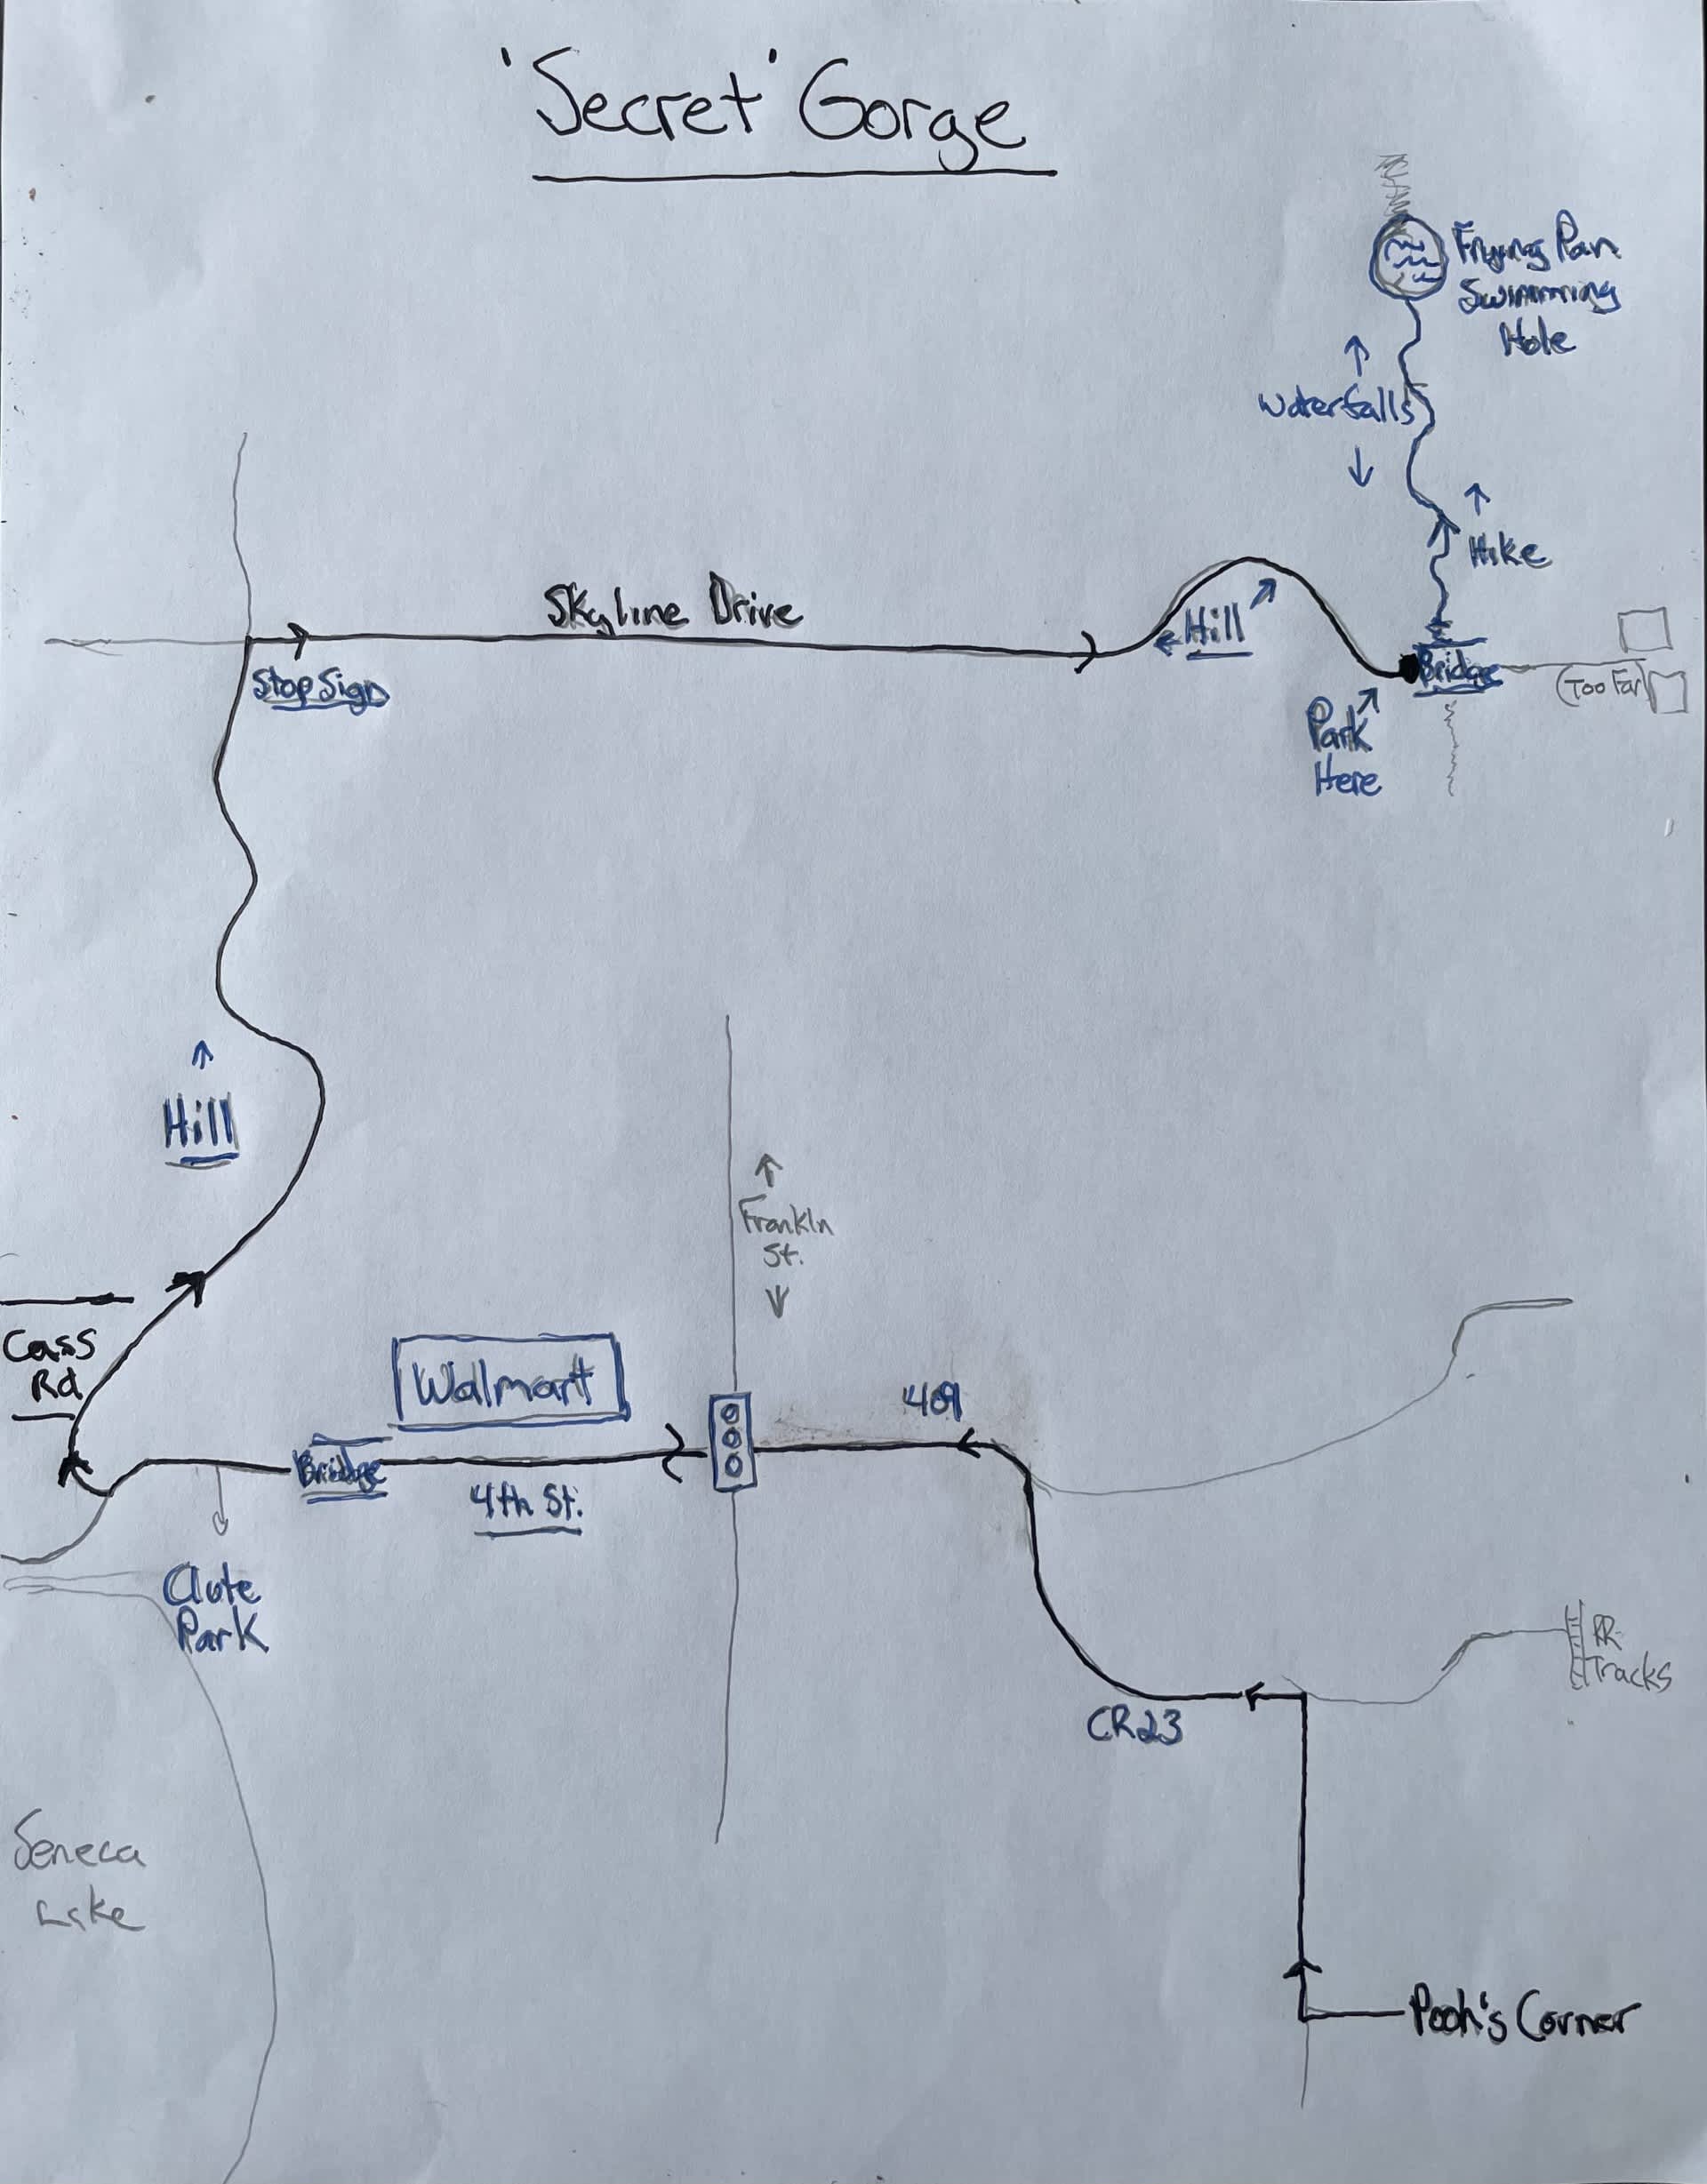 'Secret' Gorge
Frying Pan
Swimming
Hole
Waterfalls
Hike
Skyline Drive
Hill
Stop Sign
Bridge
(Too Far)
Park
Here
Hill
Frankln
St.
Cass
Rd
Walmart
409
Bridge
4th St.
Clute
Park
RR
Tracks
CR23
Seneca
Lake
Pooh's Corner